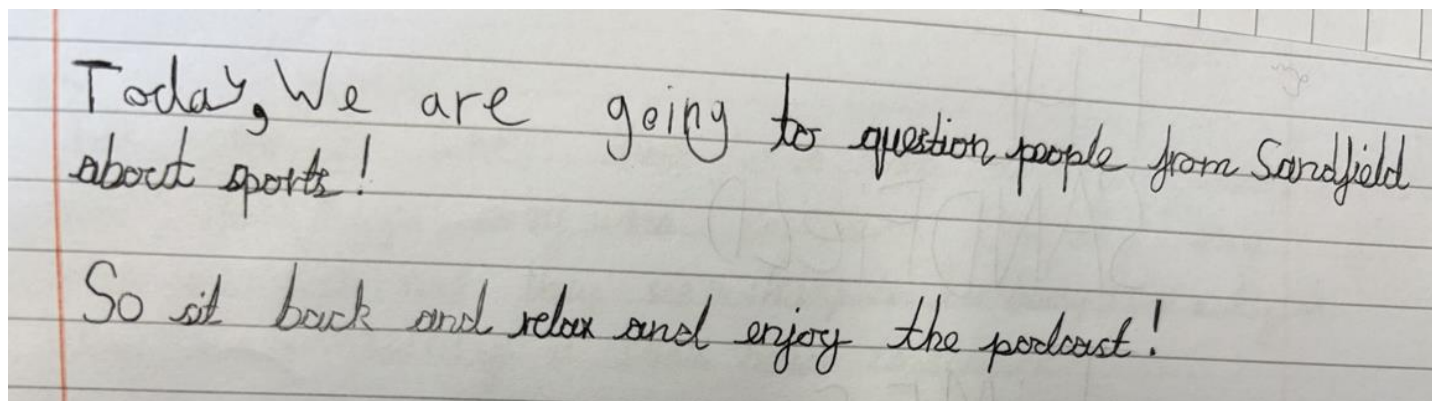 Today, We are going to question people from Sandfield
about sports!
So sit back and relax and enjoy the podcast!